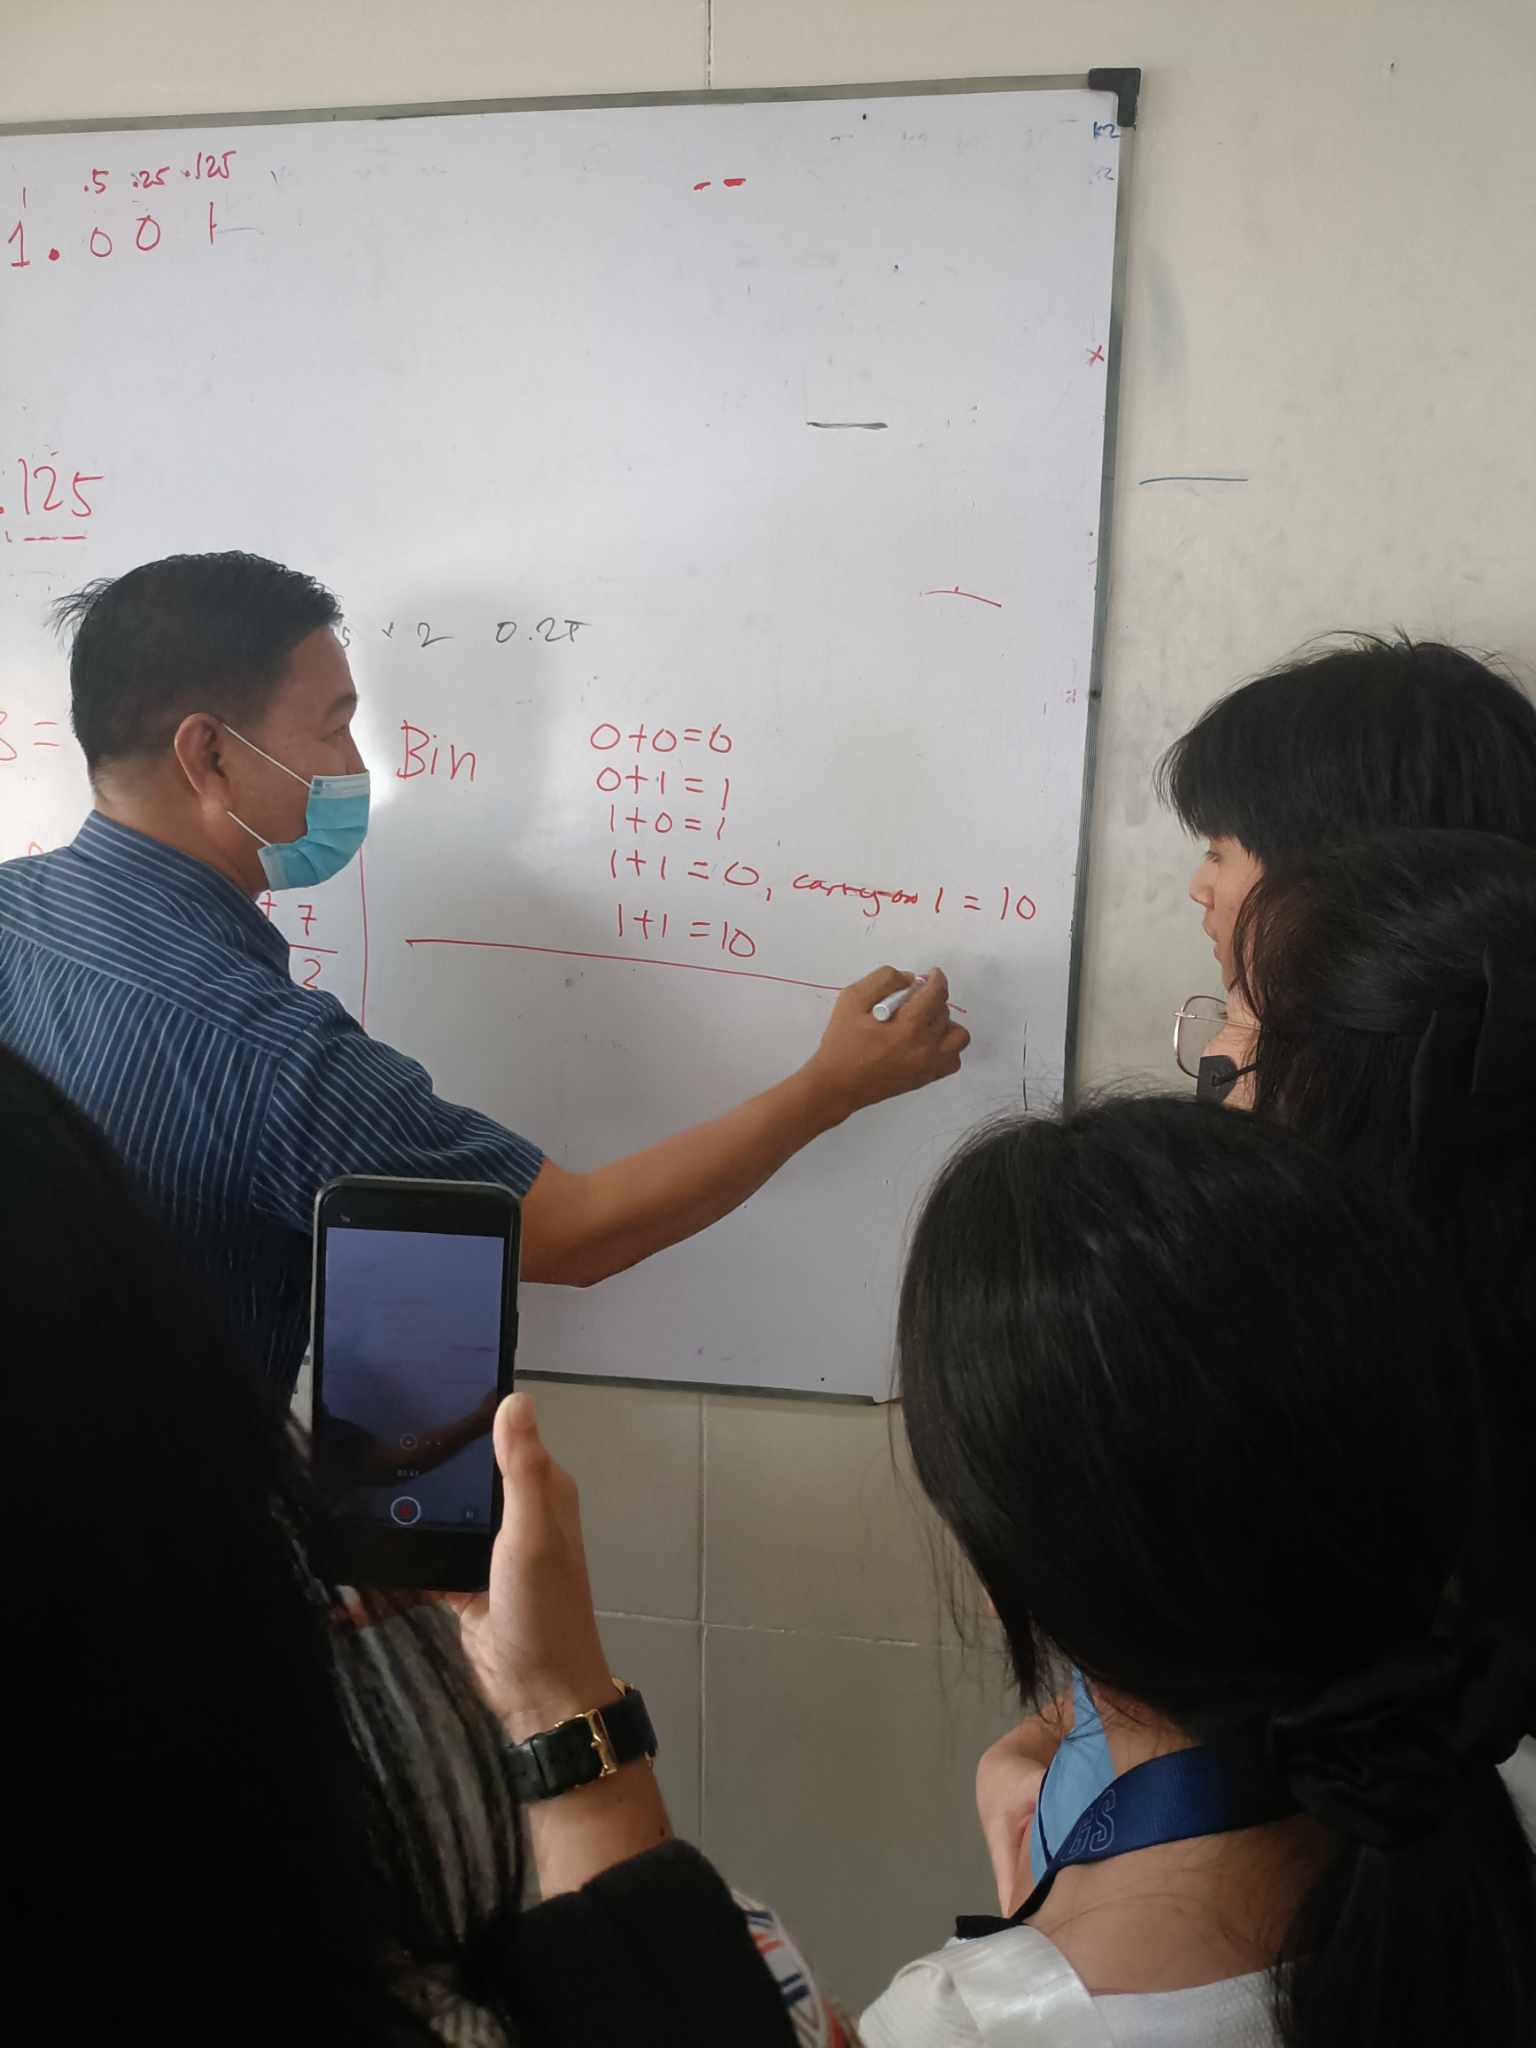 1 .5 .25 .125
1.001
.125
× 2 0.25
Bin
0+0=0
0+1=1
1+0=1
1+1=0, carry on 1=10
1+1=10
+7
2
GS